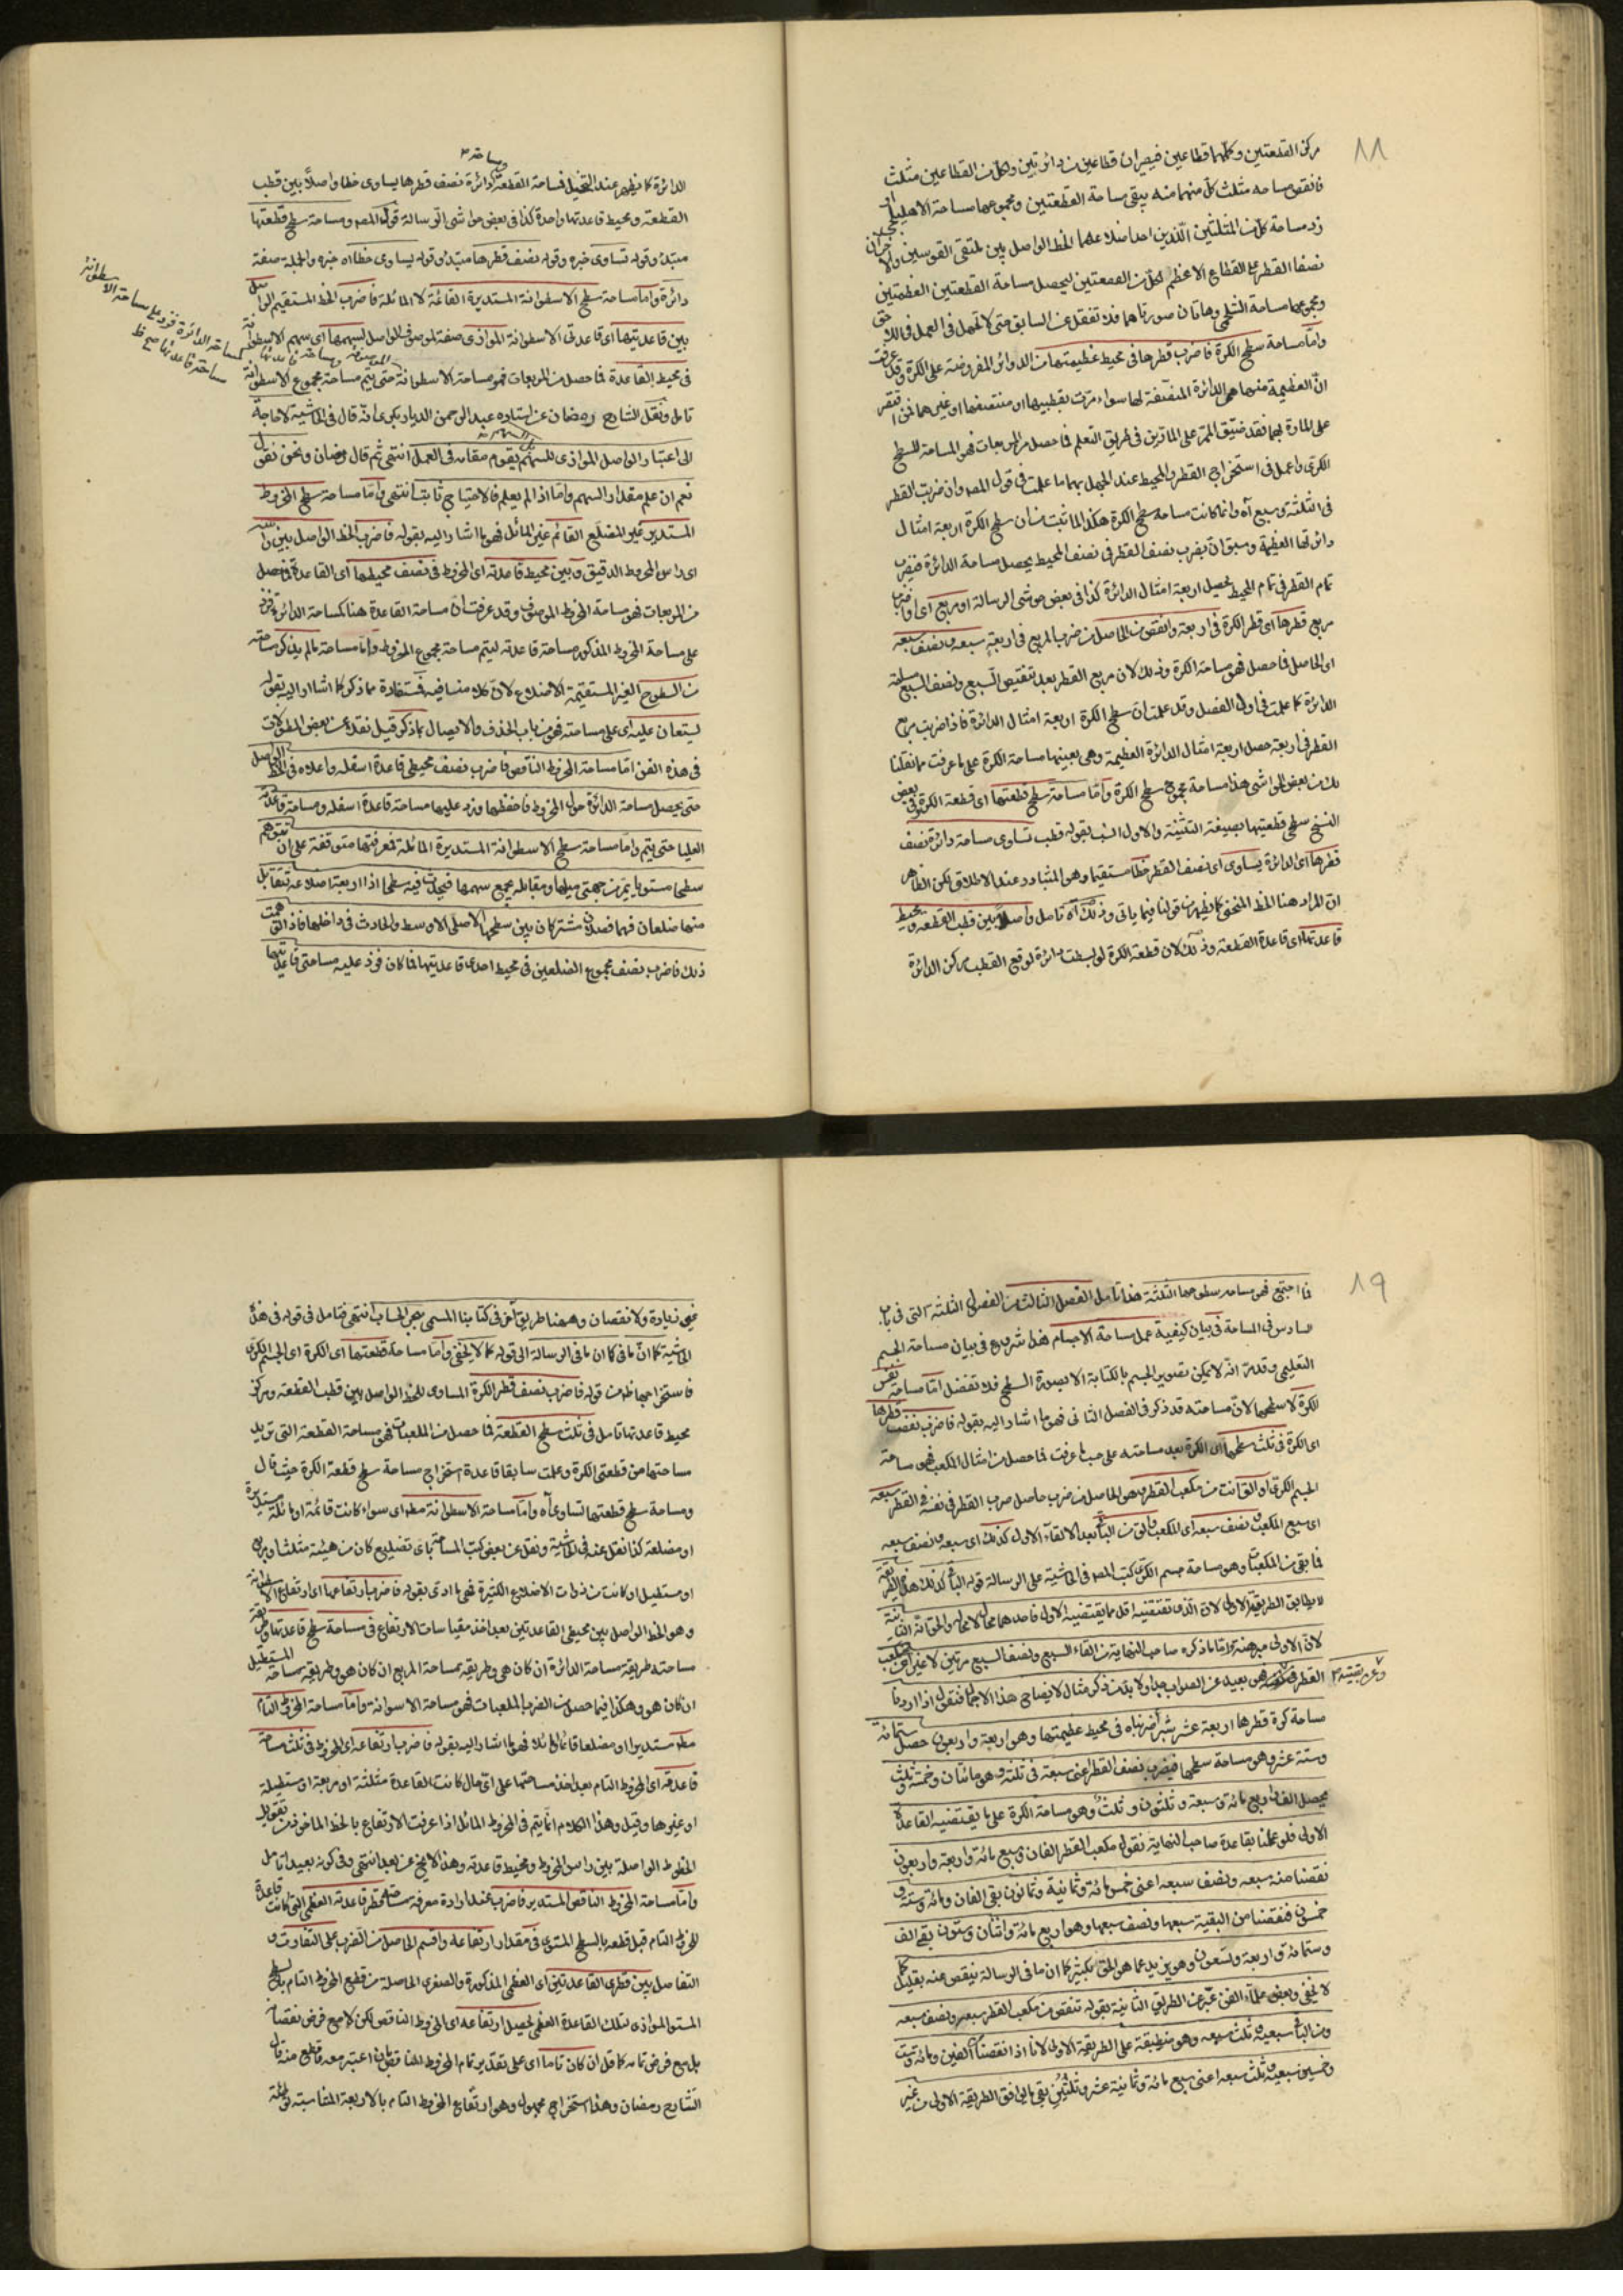 ١١
مركز القطعتين وكلتيهما قطاعين فيصيران قطاعين من دائرتين ولكل من القطاعين مثلث
فانقص مساحة مثلث كل منهما منه يبقى مساحة القطعتين ومجموعهما مساحة الاهليلجى
زد مساحة كل من المثلثين اللذين احد اضلاعهما الخط الواصل بين ملتقى القوسين والاخران
نصفا القطر على القطاع الاعظم لكل من القطعتين ليحصل مساحة القطعتين العظيمتين
ومجموعهما مساحة الشلجمى وهاتان صورتاهما فلا تغفل عن السابق حتى لا تجهل فى العمل فى اللاحق
واما مساحة سطح الكرة فاضرب قطرها فى محيط عظيمتها من الدوائر المفروضة على الكرة وقد عرفت
ان العظيمة منها هى الدائرة المنصفة لها سواء مرت بقطبيها او منتصفها او غيرهما فمن اقتصر
على المارة بهما فقد ضيق الممر على المارين فى طريق التعلم فما حصل من المربعات فهو المساحة للسطح
الكرى واعمل فى استخراج القطر والمحيط عند الجهل بهما ما علمت فى قول المص وان ضربت القطر
فى الثلثة وسبع آه وانما كانت مساحة سطح الكرة هكذا لما ثبت من ان سطح الكرة اربعة امثال
دائرتها العظيمة وسبق ان بضرب نصف القطر فى نصف المحيط يحصل مساحة الدائرة فبضرب
تمام القطر فى تمام المحيط يحصل اربعة امثال الدائرة كذا فى بعض حواشى الرسالة او مربع اى او فاضرب
مربع قطرها اى قطر الكرة فى اربعة وانقص من الحاصل من ضرب المربع فى اربعة سبعه ونصف سبعه
اى الحاصل فما حصل فهو مساحة الكرة وذلك لان مربع القطر بعد تنقيص السبع ونصف السبع مساحة
الدائرة كما علمت فى اول الفصل وقد علمت ان سطح الكرة اربعة امثال الدائرة فاذا ضربت مربع
القطر فى اربعة حصل اربعة امثال الدائرة العظيمة وهى بعينها مساحة الكرة على ما عرفت مما نقلنا
لك من بعض الحواشى هذا مساحة مجموع سطح الكرة واما مساحة سطح قطعتها اى قطعة الكرة وفى بعض
النسخ سطح قطعتيها بصيغة التثنية والاول انسب بقوله قطب تساوى مساحة دائرة نصف
قطرها اى الدائرة يساوى اى نصف القطر خطا مستقيما وهو المتبادر عند الاطلاق لكن الظاهر
ان المراد هنا الخط المنحنى كما يظهر من قولنا فيما ياتى وذلك آه تامل واصلا بين قطب القطعة ومحيط
قاعدتها اى قاعدة القطعة وذلك لان قطعة الكرة لو بسطت دائرة لوقع القطب مركز الدائرة
الدائرة كما يظهر عند التخيل فمساحة القطعة كدائرة نصف قطرها يساوى خطا واصلا بين قطب
القطعة ومحيط قاعدتها واحدة كذا فى بعض حواشى الرسالة قول المص ومساحة سطح قطعتها
مبتدأ وقوله تساوى خبره وقوله نصف قطرها مبتدأ وقوله يساوى خطا اه خبره والجملة صفة
دائرة واما مساحة سطح الاسطوانة المستديرة القائمة لا المائلة فاضرب الخط المستقيم الواصل
بين قاعدتيها اى قاعدتى الاسطوانة الموازى صفة لموصوف الواصل لسهمها اى سهم الاسطوانة
فى محيط القاعدة فما حصل من المربعات فهو مساحة الاسطوانة حتى يتم مساحة مجموع الاسطوانة
تامل ونقل الشارح رمضان عن استاده عبد الرحمن الديار بكرى انه قال فى الحاشية لا حاجة
الى اعتبار الواصل الموازى للسهم يقوم مقامه فى العمل انتهى ثم قال رمضان ونحن نقول
نعم ان علم مقدار السهم واما اذا لم يعلم فالاحتياج ثابت انتهى واما مساحة سطح المخروط
المستدير غير المضلع القائم غير المائل فهو ما اشار اليه بقوله فاضرب الخط الواصل بين رأسه
اى راس المخروط الدقيق وبين محيط قاعدته اى المخروط فى نصف محيطها اى القاعدة فما حصل
من المربعات فهو مساحة المخروط الموصوف وقد عرفت ان مساحة القاعدة هنا كمساحة الدائرة فزد
على مساحة المخروط المذكور مساحة قاعدته ليتم مساحة مجموع المخروط واما مساحة ما لم يذكر مساحته
من السطوح الغير المستقيمة الاضلاع لان كلامنا فيه فمستفادة مما ذكر كما اشار اليه بقوله
ليستعان عليه اى على مساحته فهو من باب الحذف والايصال بما ذكر قيل نقلا عن بعض المطولات
فى هذه الفن اما مساحة المخروط الناقص فاضرب نصف محيطى قاعدة اسفله واعلاه فى الخط الواصل
حتى يحصل مساحة الدائرة حول المخروط فاحفظها وزد عليها مساحة قاعدة اسفله ومساحة قاعدته
العليا حتى يتم واما مساحة سطح الاسطوانة المستديرة المائلة فمعرفتها متوقفة على ان تتوهم
سطحا مستويا يمر من جهتى ميلها ومقابله بجميع سهمها فيحدث فيه سطح اذا اربعة اضلاعه تتقابل
منها ضلعان فهما فصلان مشتركان بين سطحها الاصلى الاوسط والحادث فى داخلها فاذا توهمت
ذلك فاضرب نصف مجموع الضلعين فى محيط احدى قاعدتيها فما كان فزد عليه مساحتى قاعدتيها
١٩
فما اجتمع فهو مساحة سطوحها الثلثة هذا تامل الفصل الثالث من الفصول الثلثة التى فى باب
السادس فى المساحة فى بيان كيفية عمل مساحة الاجسام هذا شروع فى بيان مساحة الجسم
التعليمى وقد مر انه لا يمكن تصوير الجسم بالكتابة الا بصورة السطح فلا تغفل اما مساحة نفس
الكرة لا سطحها لان مساحته قد ذكر فى الفصل الثانى فهو ما اشار اليه بقوله فاضرب نصف قطرها
اى الكرة فى ثلث سطحها اى الكرة بعد مساحته على حسب ما عرفت فما حصل من امثال المكعب فهو مساحة
الجسم الكرى او الق انت من مكعب القطر وهو الحاصل من ضرب حاصل ضرب القطر فى نفسه فى القطر سبعه
اى سبع المكعب ونصف سبعه اى المكعب والق من الباقى بعد الالقاء الاول كذلك اى سبعه ونصف سبعه
فما بقى من المكعبات وهو مساحة جسم الكرى كتب المص فى الحاشية على الرسالة قوله الباقى كذلك هذه الطريقة
لا يطابق الطريقة الاولى لان الذى تقتضيه اقل مما يقتضيه الاولى فاحدهما محال لا محالة والحق انه الثانية
لان الاولى مبرهنة واما ما ذكره صاحب النهاية من القاء السبع ونصف السبع مرتين لا غير من مكعب
القطر فهى بعيد عن الصواب جدا ولا بد من ذكر مثال لايضاح هذا الاجمال فنقول اذا اردنا
مساحة كرة قطرها اربعة عشر شبرا ضربناه فى محيط عظيمتها وهو اربعة واربعون حصل ستمائة
وستة عشر وهو مساحة سطحها فيضرب نصف القطر اعنى سبعة فى ثلثه وهو مائتان وخمسة وثلث
يحصل الف واربع مائة وسبعة وثلثون وثلث وهو مساحة الكرة على ما يقتضيه القاعدة
الاولى فلو عملنا بقاعدة صاحب النهاية نقول مكعب القطر الفان وسبع مائة واربعة واربعون
نقصنا منه سبعه ونصف سبعه اعنى خمس مائة وثمانية وثمانون بقى الفان ومائة وستة و
خمسون فنقصنا من البقية سبعها ونصف سبعها وهو اربع مائة واثنان وستون بقى الف
وستمائة واربعة وتسعون وهو يزيد عما هو الحق بكثير كما ان ما فى الرسالة ينقص عنه بقليل كما
لا يخفى وبعض علماء الفن عبر عن الطريق الثانية بقوله تنقص من مكعب القطر سبعه ونصف سبعه
ومن الباقى سبعيه وثلث سبعه وهو منطبقة على الطريقة الاولى لانا اذا نقصنا من الفين ومائة وستة
وخمسين سبعيه وثلث سبعه اعنى سبع مائة وثمانية عشر وثلثين بقى ما يوافق الطريقة الاولى من غير
فى زيادة ولا نقصان وههنا طريق اخر فى كتابنا المسمى ببحر الحساب انتهى فتامل فى قوله فى هذه
الحاشية كما ان ما فى كان ما فى الرسالة الى قوله كما لا يخفى واما مساحة قطعتها اى الكرة اى الجسم الكرى
فاستخراجها ظاهر من قوله فاضرب نصف قطر الكرة المساوى للخط الواصل بين قطب القطعة ومركز
محيط قاعدتها تامل فى ثلث سطح القطعة فما حصل من المكعبات فهو مساحة القطعة التى تريد
مساحتها من قطعتى الكرة وعلمت سابقا قاعدة استخراج مساحة سطح قطعة الكرة حيث قال
ومساحة سطح قطعتها تساوى آه واما مساحة الاسطوانة مط اى سواء كانت قائمة او مائلة مستديرة
او مضلعة كذا نقل عنه فى الحاشية ونقل عن بعض كتب المساحة باى تضليع كان من هيئة مثلث او مربع
او مستطيل او كانت من ذوات الاضلاع الكثيرة فهى ما ادى بقوله فاضرب ارتفاعها اى ارتفاع الاسطوانة
وهو الخط الواصل بين محيطى القاعدتين بعد اخذ مقياسات الارتفاع فى مساحة سطح قاعدتها وطريقة
مساحته طريقة مساحة الدائرة ان كان هى وطريقة مساحة المربع ان كان هو وطريقة مساحة المستطيل
ان كان هو وهكذا فما حصل من الضرب المكعبات فهو مساحة الاسطوانة واما مساحة المخروط التام
مط مستديرا او مضلعا قائما او مائلا فهو ما اشار اليه بقوله فاضرب ارتفاعه اى المخروط فى ثلث مساحة
قاعدته اى المخروط التام بعد اخذ مساحتها على اى حال كانت القاعدة مثلثة او مربعة او مستطيلة
او غيرها وقيل وهذا الكلام انما يتم فى المخروط المائل اذا عرفت الارتفاع بالخط الماخوذ من تقويل
الخطوط الواصلة بين راس المخروط ومحيط قاعدته وهذا لا يخ عن بعد انتهى وفى كونه بعيدا تامل
واما مساحة المخروط الناقص المستدير فاضرب عند ارادة معرفة مساحته قطر قاعدته العظمى التى كانت قاعدة
للمخروط التام قبل قطعه بالسطح المستوى فى مقدار ارتفاعه واقسم الحاصل من الضرب على التفاوت و
التفاضل بين قطرى القاعدتين اى العظمى المذكورة والصغرى الحاصلة من قطع المخروط التام بالسطح
المستو الموازى لتلك القاعدة العظمى يحصل ارتفاعه اى المخروط الناقص لكن لا مع فرض نقصانه
بل مع فرض تمامه كما قال ان كان تاما اى على تقدير تمام المخروط الناقص بان اعتبر معه ما قطع منه قال
الشارح رمضان وهذا استخراج مجهول وهو ارتفاع المخروط التام بالاربعة المتناسبة